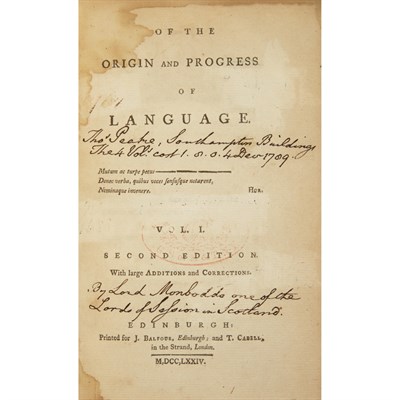 OF THE
ORIGIN AND PROGRESS
OF
LANGUAGE.
Thos. Peake, Southampton Buildings
The 4 Vols. cost 1. 8. 0. 4 Decr. 1789.
Mutum ac turpe pecus
Donec verba, quibus voces sensusque notarent,
Nominaque invenere. HOR.
VOL. I.
SECOND EDITION.
With large ADDITIONS and CORRECTIONS.
By Lord Monboddo one of the
Lords of Session in Scotland.
EDINBURGH:
Printed for J. BALFOUR, Edinburgh; and T. CADELL,
in the Strand, London.
M,DCC,LXXIV.